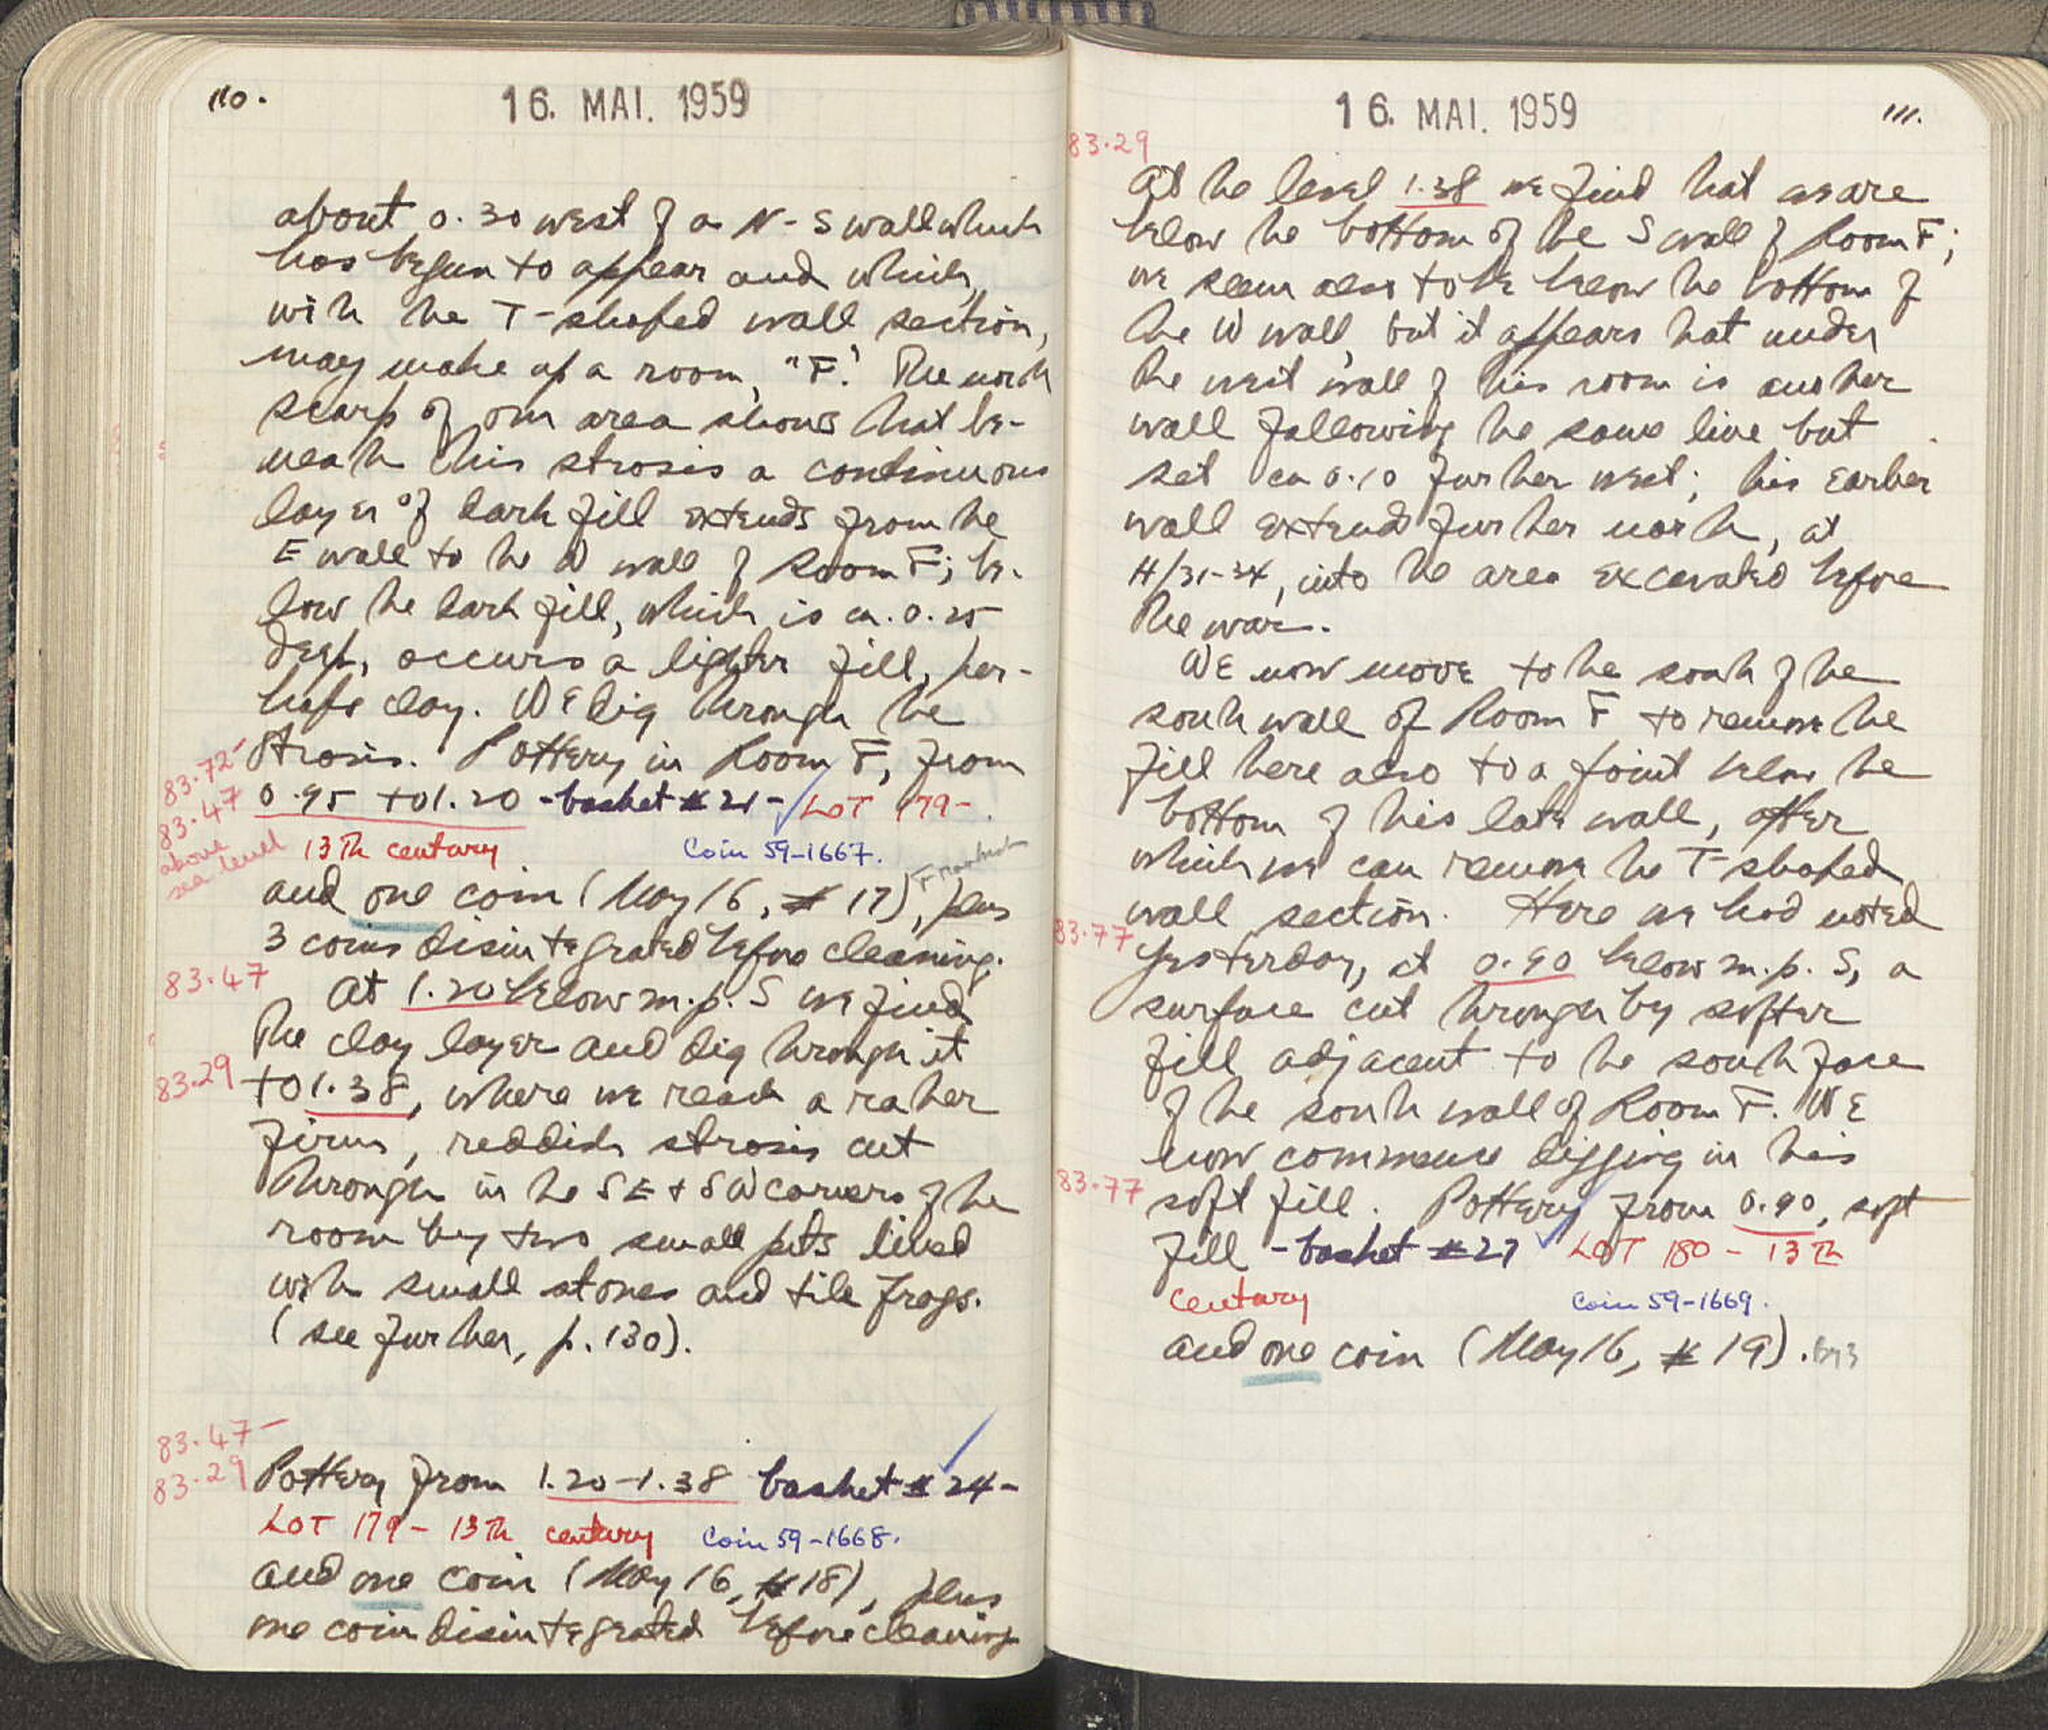 110.
16. MAI. 1959
about 0.30 west of a N-S wall which
has begun to appear and which,
with the T-shaped wall section,
may make up a room, "F." The north
scarp of our area shows that be-
neath this strosis a continuous
layer of dark fill extends from the
E wall to the W wall of Room F; be-
low the dark fill, which is ca. 0.25
deep, occurs a lighter fill, per-
haps clay. We dig through the
strosis. Pottery in Room F, from
83.72-
83.47
above
sea level
0.95 to 1.20 - basket #21 - LOT 179 -
13th century
Coin 59-1667.
and one coin (May 16, #17), plus
3 coins disintegrated before cleaning.
83.47
At 1.20 below m.p. S we find
the clay layer and dig through it
83.29
to 1.38, where we reach a rather
firm, reddish strosis cut
through in the SE + SW corners of the
room by two small pits lined
with small stones and tile frags.
(see further, p. 130).
83.47-
83.29
Pottery from 1.20-1.38 basket #24 -
LOT 179 - 13th century Coin 59-1668.
and one coin (May 16, #18), plus
one coin disintegrated before cleaning
16. MAI. 1959
111.
83.29
At the level 1.38 we find that we are
below the bottom of the S wall of Room F;
we seem also to be below the bottom of
the W wall, but it appears that under
the west wall of this room is another
wall following the same line but
set ca 0.10 further west; this earlier
wall extends further north, at
H/31-34, into the area excavated before
the war.
We now move to the south of the
south wall of Room F to remove the
fill here also to a point below the
bottom of this late wall, after
which we can remove the T-shaped
wall section. Here we had noted
83.77
yesterday, at 0.90 below m.p. S, a
surface cut through by softer
fill adjacent to the south face
of the south wall of Room F. We
now commence digging in this
83.77
soft fill. Pottery from 0.90, soft
fill - basket #27 LOT 180 - 13th
century
Coin 59-1669.
and one coin (May 16, #19).